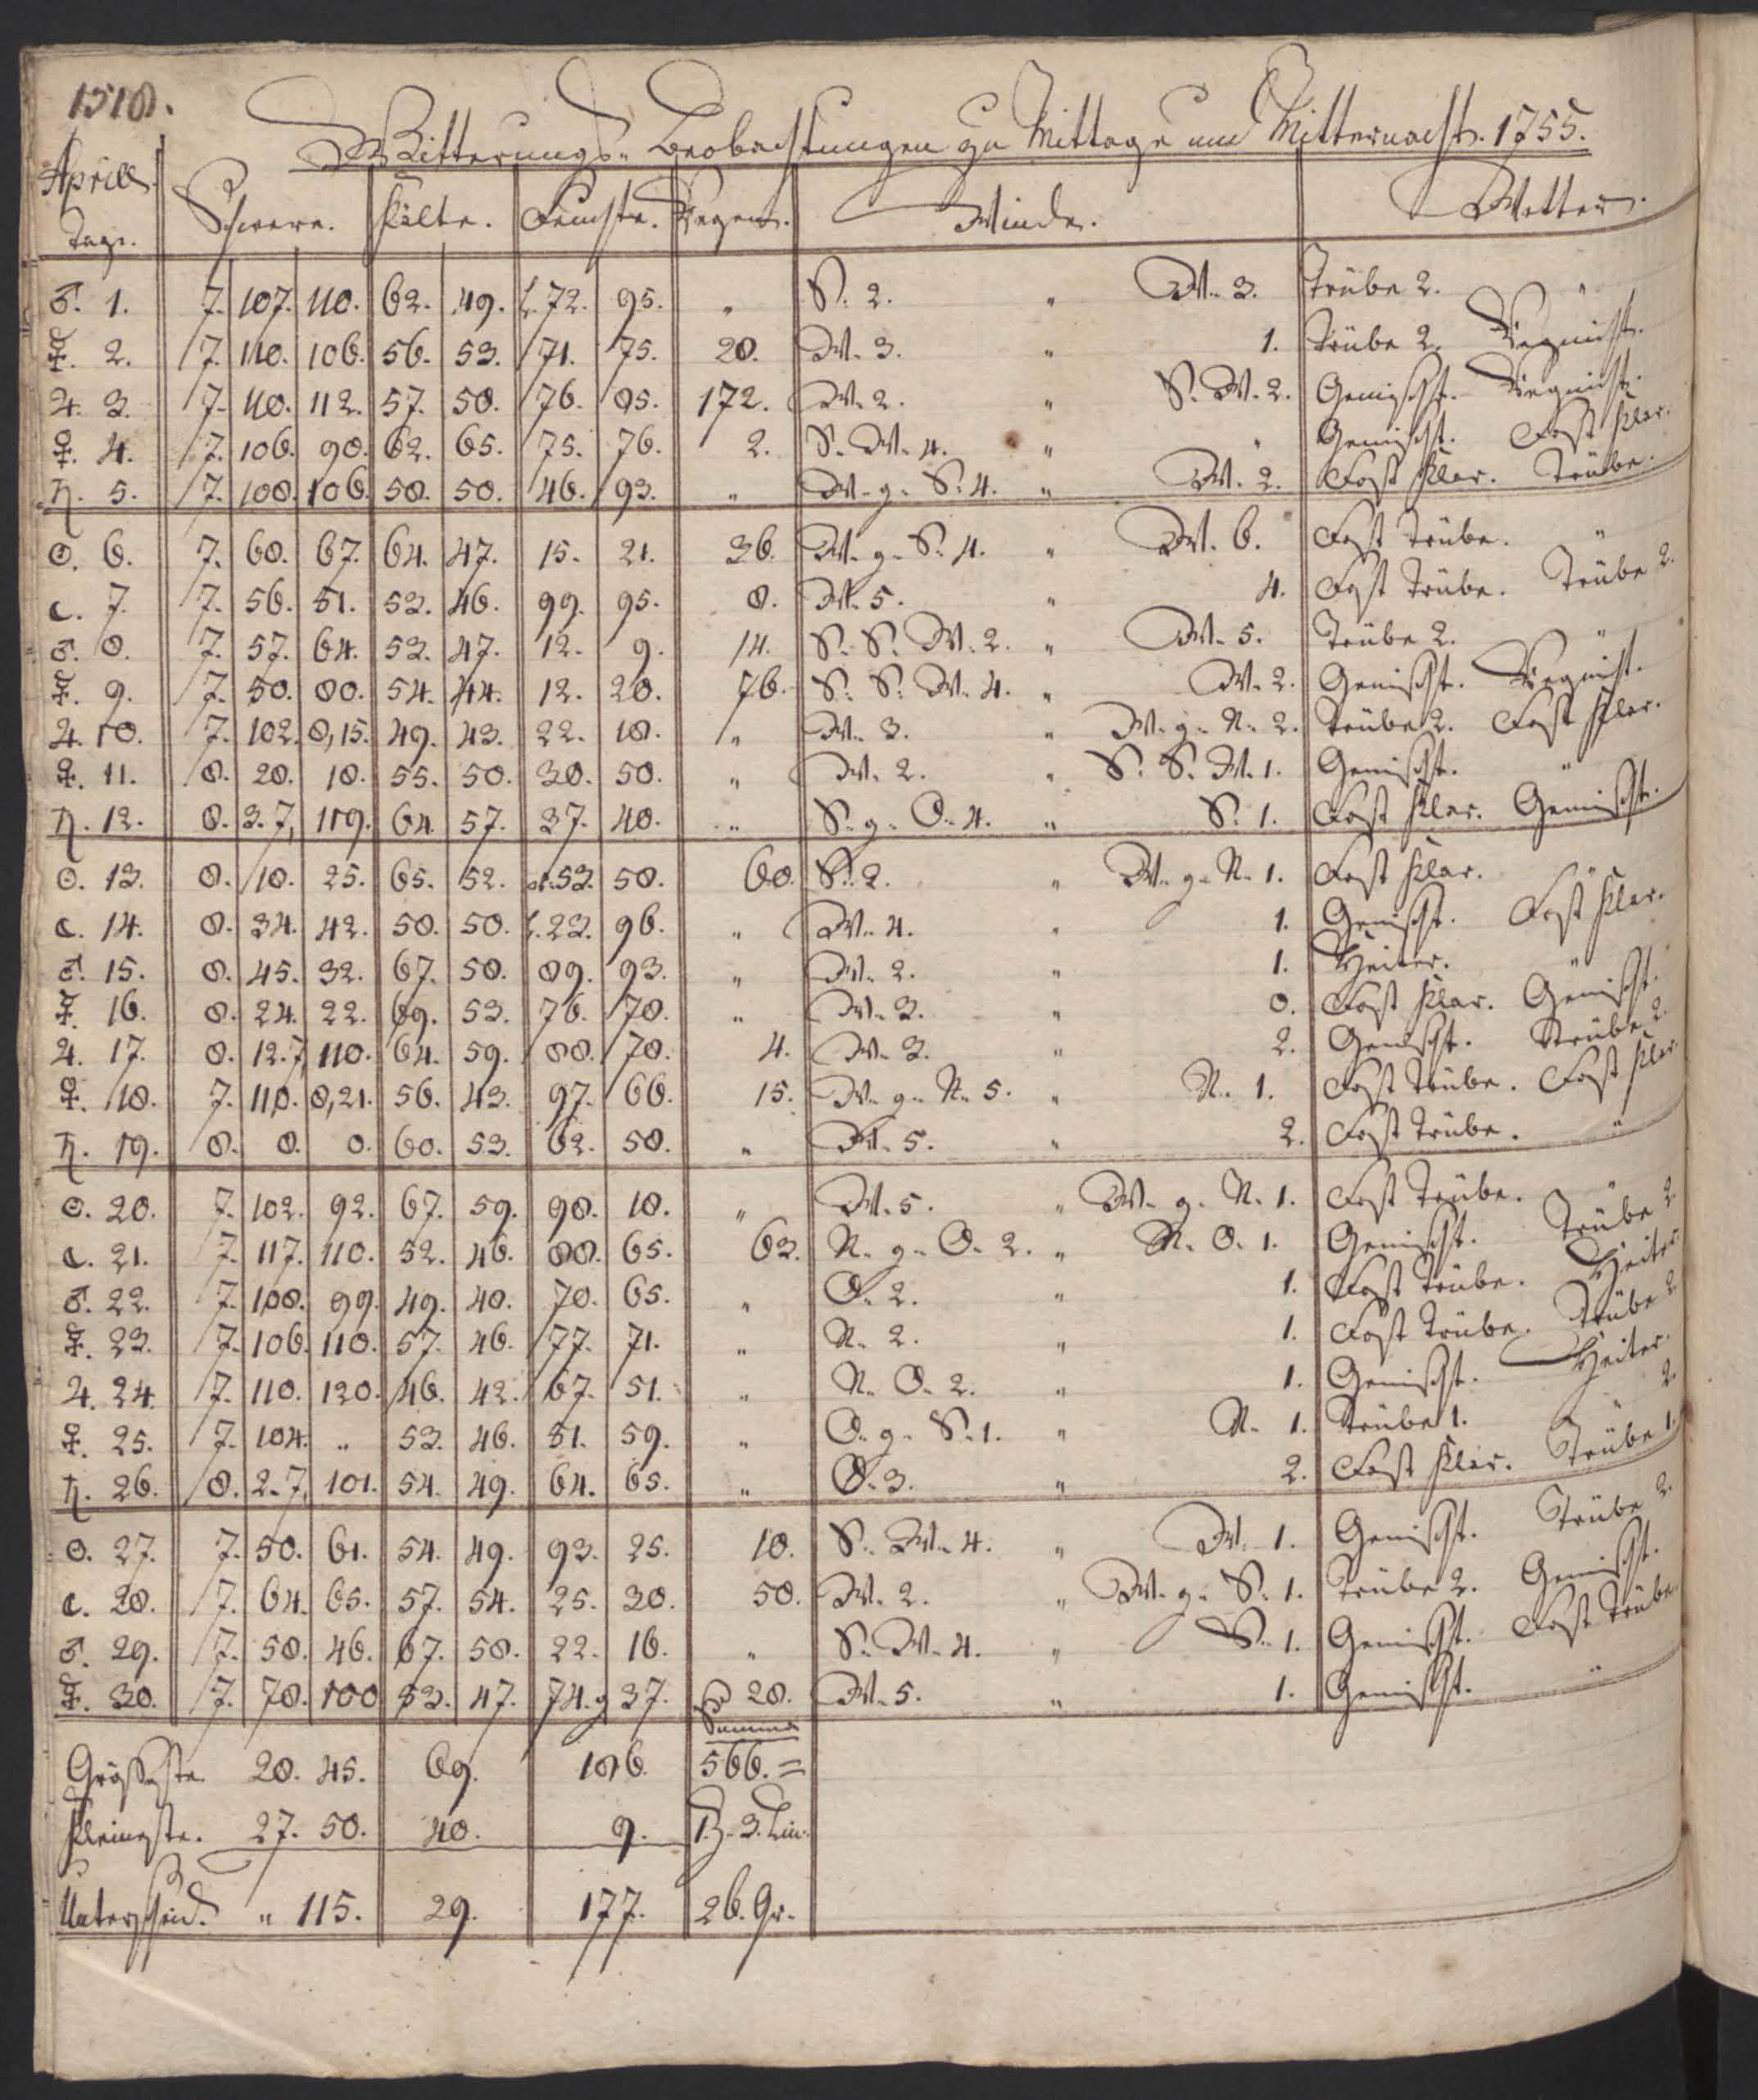 1518.
Witterungs-Beobachtungen zu Mittage und Mitternacht. 1755.
Aprill. Tage. Schwere. Kälte. Feuchte. Regen. Winde. Wetter.
♂. 1. 7. 107. 110. 62. 49. 72. 95. „ S. 2. „ W. 3. Trübe 2. „
☿. 2. 7. 110. 106. 56. 53. 71. 75. 28. W. 3. „ 1. Trübe 2. Vermischt.
♃. 3. 7. 110. 112. 57. 58. 76. 85. 172. W. 2. „ S. W. 2. Gemischt.
♀. 4. 7. 106. 98. 62. 65. 75. 76. 2. S. W. 4. „ „ Gemischt. Fast Klar.
♄. 5. 7. 108. 106. 58. 50. 46. 93. „ W. g. S. 4. „ W. 2. Fast Klar. Trübe.
☉. 6. 7. 60. 67. 64. 47. 15. 21. 36. W. g. S. 4. „ W. 6. Fast Trübe. „
☾. 7. 7. 56. 51. 53. 46. 99. 95. 8. W. 5. „ 4. Fast Trübe. Trübe 2.
♂. 8. 7. 57. 64. 53. 47. 12. 9. 14. S. S. W. 2. „ W. 5. Trübe 2. „
☿. 9. 7. 50. 80. 54. 44. 12. 20. 76. S. S. W. 4. „ W. 2. Gemischt.
♃. 10. 7. 102. 8,15. 49. 43. 22. 18. „ W. 3. „ W. g. N. 2. Trübe 2. Fast Klar.
♀. 11. 8. 20. 18. 55. 50. 30. 50. „ W. 2. „ S. S. W. 1. Gemischt. „
♄. 12. 8. 3. 7, 119. 64. 57. 37. 40. „ S. g. O. 4. „ S. 1. Fast Klar. Gemischt.
☉. 13. 8. 10. 25. 65. 52. 53. 58. 60. S. 2. „ W. g. N. 1. Fast Klar. „
☾. 14. 8. 34. 42. 58. 50. 23. 96. „ W. 4. „ 1. Gemischt. Fast Klar.
♂. 15. 8. 45. 32. 67. 50. 89. 93. „ W. 2. „ 1. Heiter. „
☿. 16. 8. 24. 22. 69. 53. 76. 78. „ W. 3. „ 0. Fast Klar. Gemischt.
♃. 17. 8. 12. 7, 110. 64. 59. 88. 78. 4. W. 3. „ 2. Gemischt. Trübe 2.
♀. 18. 7. 118. 8,21. 56. 43. 97. 66. 15. W. g. N. 5. „ N. 1. Fast Trübe. Fast Klar.
♄. 19. 8. 8. 0. 60. 53. 62. 58. „ W. 5. „ 2. Fast Trübe. „
☉. 20. 7. 102. 92. 67. 59. 98. 18. „ W. 5. „ W. g. N. 1. Fast Trübe. „
☾. 21. 7. 117. 110. 52. 46. 88. 65. 63. N. g. O. 2. „ N. O. 1. Gemischt. Trübe 2.
♂. 22. 7. 108. 99. 49. 40. 70. 65. „ O. 2. „ 1. Fast Trübe. Heiter.
☿. 23. 7. 106. 110. 57. 46. 77. 71. „ N. 2. „ 1. Fast Trübe. Trübe 2.
♃. 24. 7. 118. 120. 46. 42. 67. 51. „ N. O. 2. „ 1. Gemischt. Heiter.
♀. 25. 7. 104. „ 53. 46. 51. 59. „ O. g. S. 1. „ N. 1. Trübe 1. „ 2.
♄. 26. 8. 2. 7, 101. 54. 49. 64. 65. „ O. 3. „ 2. Fast Klar. Trübe 1.
☉. 27. 7. 50. 61. 54. 49. 93. 25. 10. S. W. 4. „ W. 1. Gemischt. Trübe 2.
☾. 28. 7. 64. 65. 57. 54. 25. 30. 50. W. 2. „ W. g. S. 1. Trübe 2. Gemischt.
♂. 29. 7. 58. 46. 67. 58. 22. 16. „ S. W. 4. „ S. 1. Gemischt. Fast Trübe.
☿. 30. 7. 78. 100 53. 47. 74. 37. 28. W. 5. „ 1. Gemischt. „
Summa
Größeste. 28. 45. 69. 186. 566. =
Kleineste. 27. 50. 40. 9. 1. Z. 3. Lin.
Unterscheid. „ 115. 29. 177. 26. Gr.